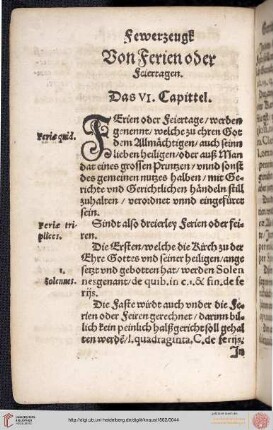 Fewerzeugk
Von Ferien oder
Feiertagen.
Das VI. Capittel.
FErien oder Feiertage/ werden
feriæ quid. genennt/ welche zu ehren Got
dem Allmächtigen/ auch seinn
lieben heiligen/ oder auß Man
dat eines grossen Printzen/ vnnd sonst
des gemeinen nutzes halben/ mit Ge-
richts vnd Gerichtlichen händeln still
zuhalten/ verordnet vnnd eingefüret
sein.
feriæ tri- Sindt also dreierley Ferien oder fei-
plices. ren.
Die Ersten/ welche die Kirch zu der
1. Ehre Gottes vnd seiner heiligen/ ange
solennes. setzt vnd gebotten hat/ werden Solen
nes genant/ de quib. in c. 1. & fin. de fe
rijs.
Die Faste wirdt auch vnder die Fe-
rien oder Feiren gerechnet/ darinn bil-
lich kein peinlich halßgericht söll gehal
ten werdē/ l. quadraginta, C. de ferijs.
In